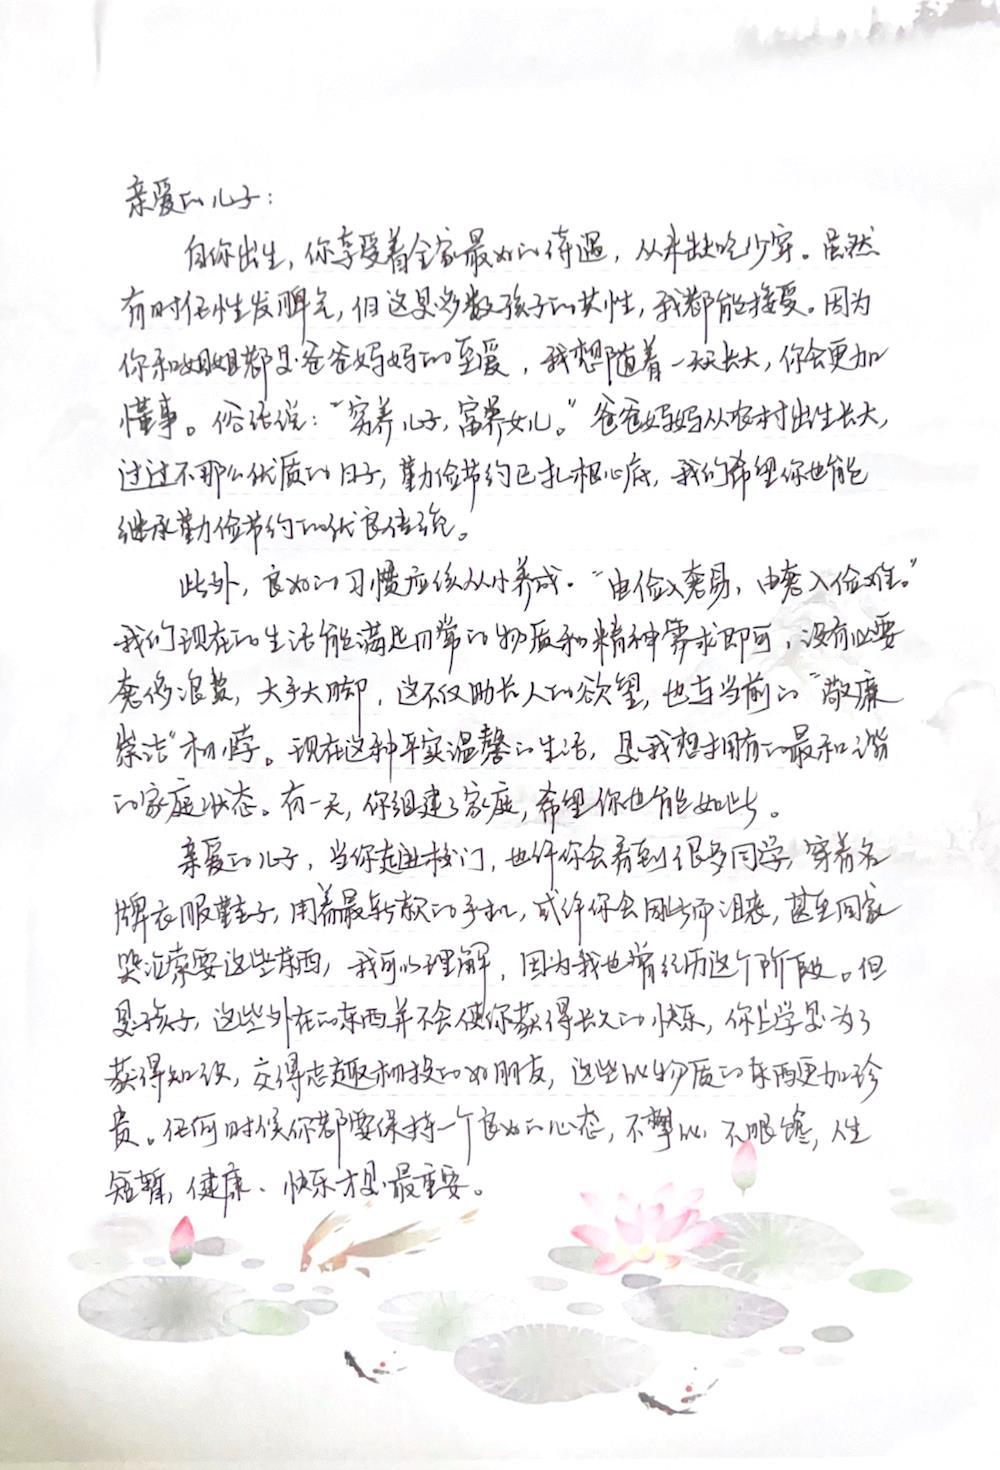 亲爱的儿子：
自你出生，你享受着全家最好的待遇，从未缺吃少穿。虽然
有时任性发脾气，但这是多数孩子的共性，我都能接受。因为
你和姐姐都是爸爸妈妈的至爱，我想随着一天天长大，你会更加
懂事。俗话说：“穷养儿子，富养女儿。”爸爸妈妈从农村出生长大，
过过不那么优质的日子，勤俭节约已扎根心底，我们希望你也能
继承勤俭节约的优良传统。
此外，良好的习惯应该从小养成。“由俭入奢易，由奢入俭难。”
我们现在的生活能满足日常的物质和精神需求即可，没有必要
奢侈浪费，大手大脚，这不仅助长人的欲望，也与当前的“敬廉
崇洁”相悖。现在这种平实温馨的生活，是我想拥有的最和谐
的家庭状态。有一天，你组建了家庭，希望你也能如此。
亲爱的儿子，当你走进校门，也许你会看到很多同学，穿着名
牌衣服鞋子，用着最新款的手机，或许你会因此而沮丧，甚至回家
哭泣索要这些东西，我可以理解，因为我也曾经历这个阶段。但
是孩子，这些外在的东西并不会使你获得长久的快乐，你上学是为了
获得知识，交得志趣相投的好朋友，这些比物质的东西更加珍
贵。任何时候你都要保持一个良好的心态，不攀比 不眼馋，人生
短暂，健康、快乐才是最重要。